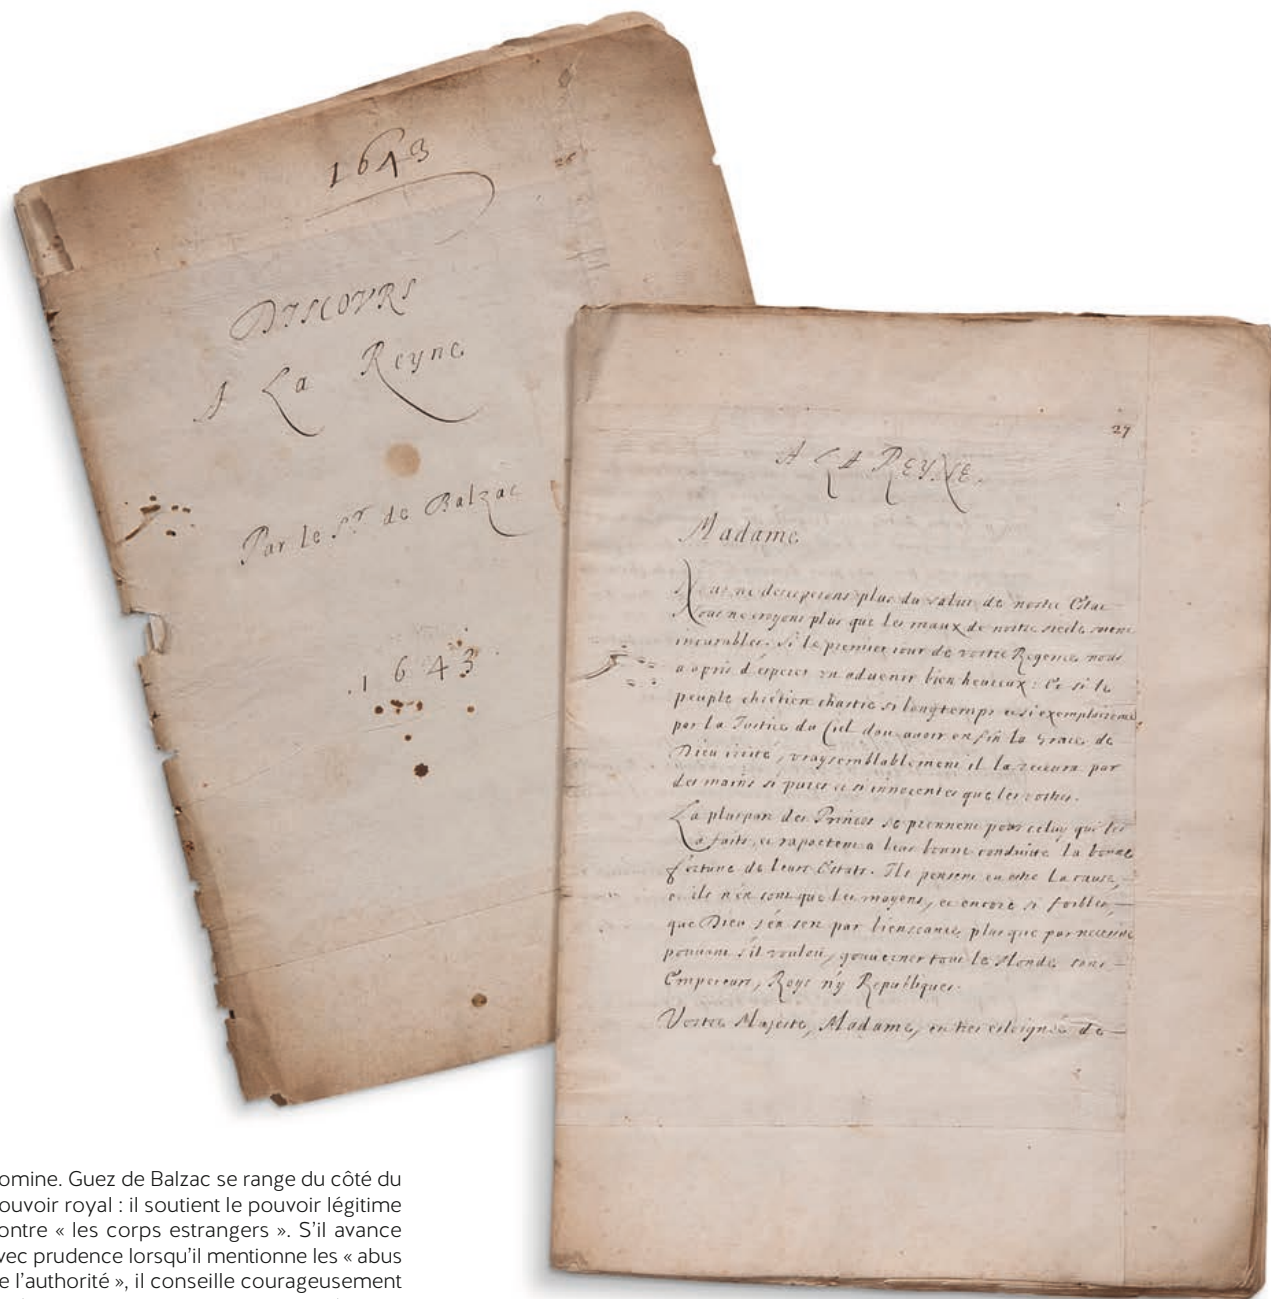 1643
26
DISCOVRS
A La Reyne
Par le Sr. de Balzac
.1643.
27
A LA REYNE.
Madame
Nous ne desesperons plus du salut de nostre Estat
Nous ne croyons plus que les maux de nostre siecle soient
incurables. Si le premier iour de vostre Regence nous
a apris d'esperer vn aduenir bien heureux: Et si le
peuple chrétien chastié si longtemps et si exemplairement
par la Justice du Ciel doit auoir enfin la grace de
Dieu irrité, vraysemblablement il la receura par
des mains si pures et si innocentes que les vostres.
La pluspart des Princes se prennent pour celuy qui les
a faits, et raportent a leur bonne conduite la bonne
fortune de leurs Estats. Ils pensent en estre la cause,
et ils n'en sont que les moyens, et encore si foibles,
que Dieu s'en sert par bienseance plus que par necessité
pouuant s'il vouloit, gouuerner tout le Monde sans
Empereurs, Roys n'y Republiques.
Vostre Majesté, Madame, est tres esloignée de
omine. Guez de Balzac se range du côté du
ouvoir royal : il soutient le pouvoir légitime
ontre « les corps estrangers ». S'il avance
vec prudence lorsqu'il mentionne les « abus
e l'authorité », il conseille courageusement